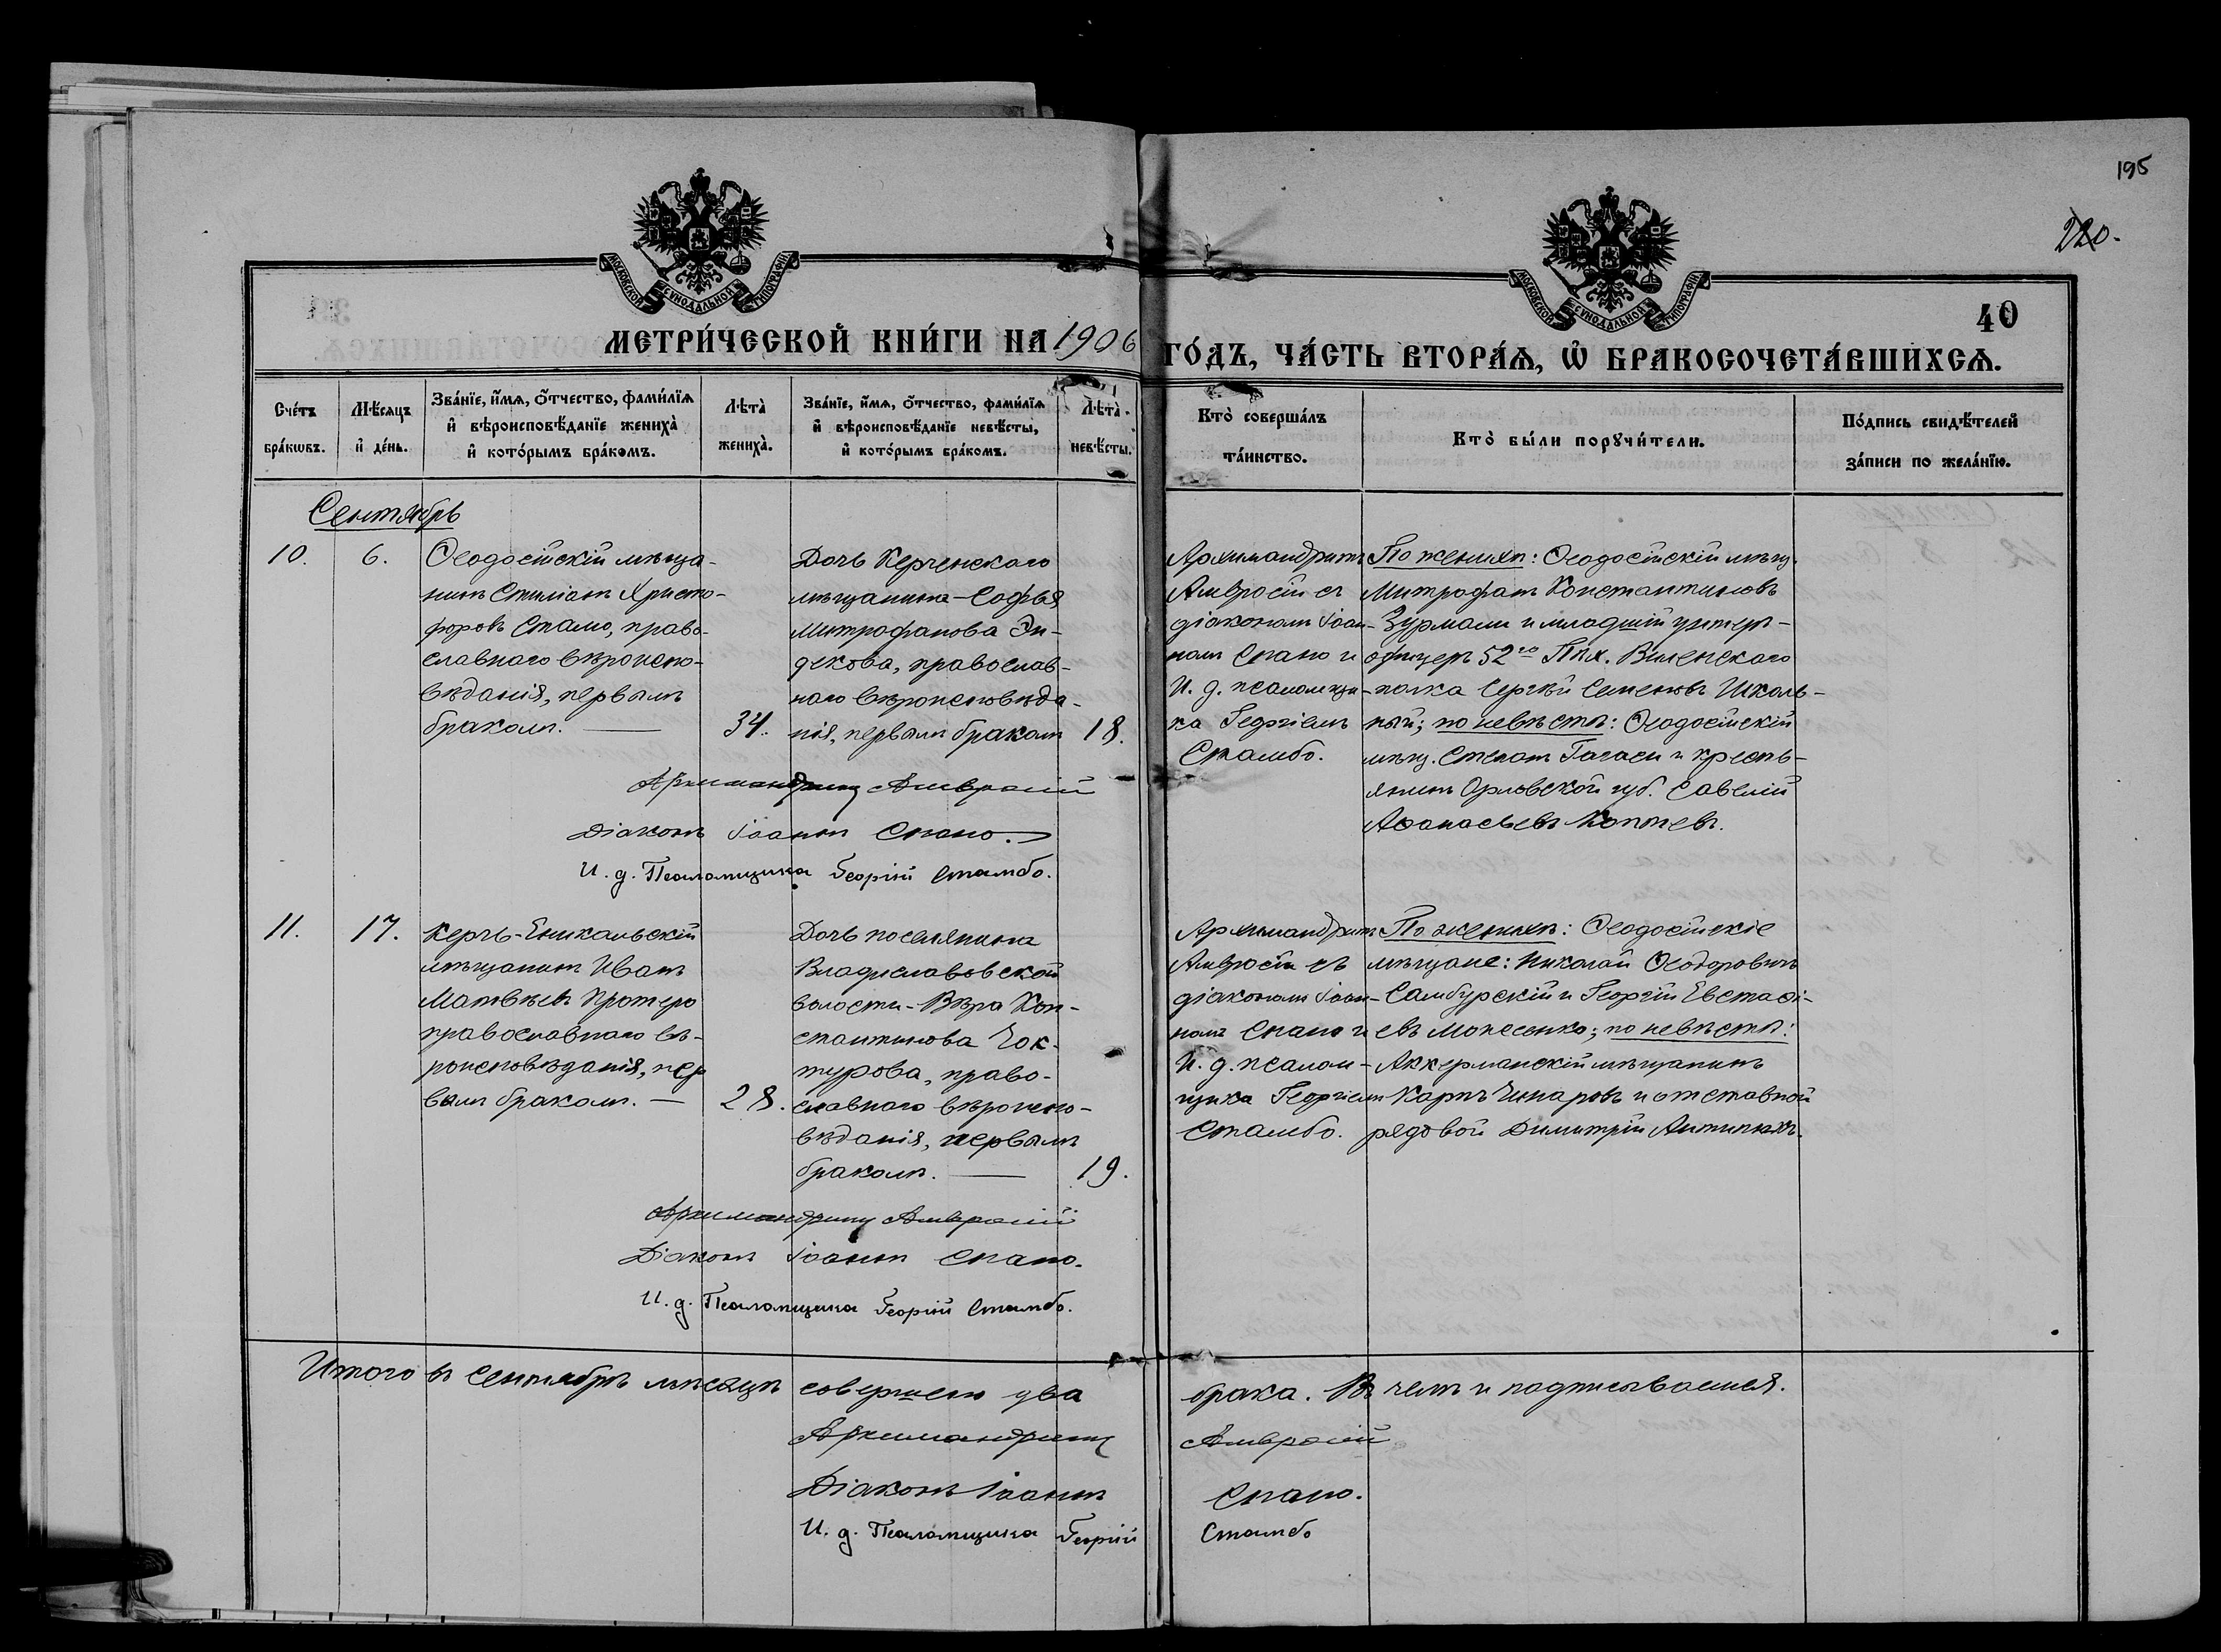 195
220.
МОСКОВСКОЙ СѴНОДАЛЬНОЙ ТИПОГРАФІИ
МОСКОВСКОЙ СѴНОДАЛЬНОЙ ТИПОГРАФІИ
40
МЕТРИ́ЧЕСКОЙ КНИ́ГИ НА 1906 ГО́ДЪ, ЧА́СТЬ ВТОРА́Я, Ѽ БРАКОСОЧЕТА́ВШИХСЯ.
Сче́тъ бра́кѡвъ.
Мѣ́сяцъ и҆ де́нь.
Зва́нїе, и҆́мя, ѻ҆́тчество, фами́лїя
и҆ вѣроисповѣ́данїе жениха̀
и҆ кото́рымъ бра́комъ.
Лѣта̀ жениха̀.
Зва́нїе, и҆́мя, ѻ҆́тчество, фами́лїя
и҆ вѣроисповѣ́данїе невѣ́сты,
и҆ кото́рымъ бра́комъ.
Лѣта̀ невѣ́сты.
Кто̀ соверша́лъ
та́инство.
Кто̀ бы́ли порꙋчи́тели.
По́дпись свидѣ́телей
за́писи по жела́нїю.
Сентябрь
10.
6.
Ѳеодосійскій мѣща-
нинъ Стиліанъ Христо-
форовъ Стамо, право-
славнаго вѣроиспо-
вѣданія, первымъ
бракомъ. —
34.
Дочь Керченскаго
мѣщанина - Софья
Митрофанова Эн-
декова, православ-
наго вѣроисповѣда-
нія, первымъ бракомъ
18.
Архимандритъ
Амвросій съ
діакономъ Іоан-
номъ Спано и
И. д. псаломщи-
ка Георгіемъ
Стамбо.
По женихѣ: Ѳеодосійскій мѣщ.
Митрофанъ Константиновъ
Зурмали и младшій унтеръ-
офицеръ 52го Пѣх. Виленскаго
полка Сергѣй Семеновъ Школь-
ный; по невѣстѣ: Ѳеодосійскій
мѣщ. Степанъ Гагаси и кресть-
янинъ Орловской губ. Савелій
Аѳанасьевъ Коптевъ.
Архимандритъ Амвросій
Діаконъ Іоаннъ Спано.
И. д. Псаломщика Георгій Стамбо.
11.
17.
Керчь-Еникальскій
мѣщанинъ Иванъ
Матвѣевъ Протеро
православнаго вѣ-
роисповѣданія, пер
вымъ бракомъ. —
28.
Дочь поселянина
Владиславовской
волости - Вѣра Кон-
стантинова Чок-
турова, право-
славнаго вѣроиспо-
вѣданія, первымъ
бракомъ. —
19.
Архимандритъ
Амвросій съ
діакономъ Іоан-
номъ Спано и
И. д. псалом-
щика Георгіемъ
Стамбо.
По женихѣ: Ѳеодосійскіе
мѣщане: Николай Ѳеодоровичъ
Самбурскій и Георгій Евстаѳі-
евъ Моисеенко; по невѣстѣ:
Аккерманскій мѣщанинъ
Карпъ Чинаровъ и отставной
рядовой Димитрій Антипюкъ.
Архимандритъ Амвросій
Діаконъ Іоаннъ Спано.
И. д. Псаломщика Георгій Стамбо.
Итого въ Сентябрѣ мѣсяцѣ совершено два брака. Въ чемъ и подписываемся.
Архимандритъ Амвросій
Діаконъ Іоаннъ Спано.
И. д. Псаломщика Георгій Стамбо